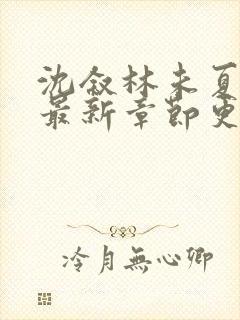 沈叙林未夏
最新章节更
冷月無心卿